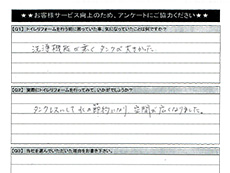 ★★お客様サービス向上のため、アンケートにご協力ください★★
【Q1】トイレリフォームを行う前に困っていた事、気になっていたことは何ですか？
洗浄機能が悪く タンクが大きかった。
【Q2】実際にトイレリフォームを行ってみて、いかがでしょうか？
タンクレスにして 水の節約になり、空間が広くなりました。
【Q3】当社を選んでいただいた理由をお書き下さい。